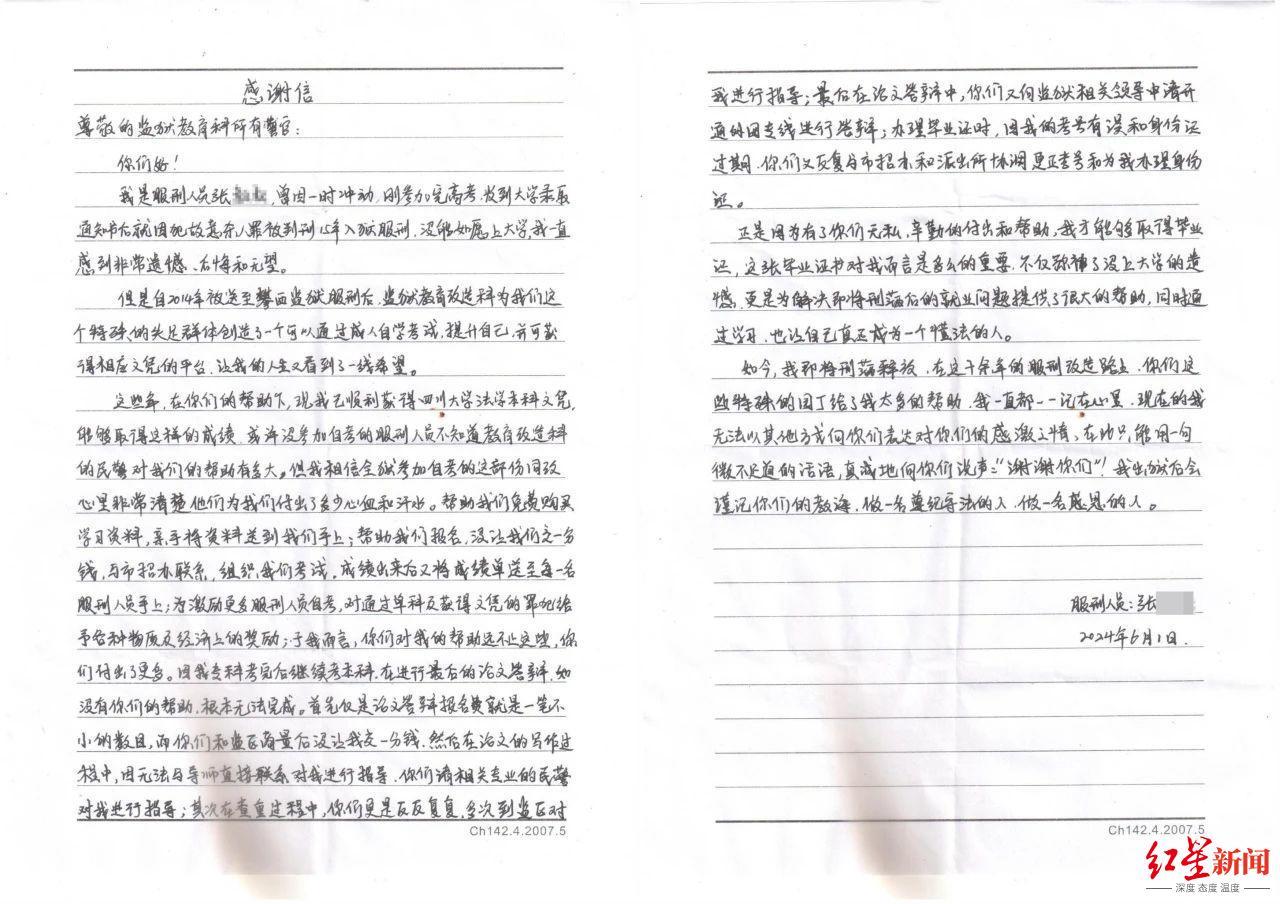 感谢信
尊敬的监狱教育科所有警官：
你们好！
我是服刑人员张，曾因一时冲动，刚参加完高考，收到大学录取
通知书后就因犯故意杀人罪被判刑15年入狱服刑，没能如愿上大学，我一直
感到非常遗憾、后悔和无望。
但是自2014年被送至攀西监狱服刑后，监狱教育改造科为我们这
个特殊的失足群体创造了一个可以通过成人自学考试，提升自己，并可获
得相应文凭的平台，让我的人生又看到了一线希望。
这些年，在你们的帮助下，现我已顺利获得四川大学法学本科文凭，
能够取得这样的成绩，或许没参加自考的服刑人员不知道教育改造科
的民警对我们的帮助有多大。但我相信全狱参加自考的这部份同改
心里非常清楚他们为我们付出了多少心血和汗水。帮助我们免费购买
学习资料，亲手将资料送到我们手上；帮助我们报名，没让我们交一分
钱，与市招办联系，组织我们考试。成绩出来后又将成绩单送至每一名
服刑人员手上；为激励更多服刑人员自考，对通过单科及获得文凭的罪犯给
予各种物质及经济上的奖励；于我而言，你们对我的帮助远不止这些，你
们付出了更多。因我专科考完后继续考本科，在进行最后的论文答辩，如
没有你们的帮助，根本无法完成。首先仅是论文答辩报名费就是一笔不
小的数目，而你们和监区商量后没让我交一分钱，然后在论文的写作过
程中，因无法与导师直接联系对我进行指导，你们请相关专业的民警
对我进行指导；其次在查重过程中，你们更是反反复复，多次到监区对
Ch142.4.2007.5
我进行指导；最后在论文答辩中，你们又向监狱相关领导申请开
通外网专线进行答辩；办理毕业证时，因我的考号有误和身份证
过期，你们又反复与市招办和派出所协调更正考号和为我办理身份
证。
正是因为有了你们无私，辛勤的付出和帮助，我才能够取得毕业
证，这张毕业证书对我而言是多么的重要，不仅弥补了没上大学的遗
憾，更是为解决即将刑满后的就业问题提供了很大的帮助，同时通
过学习，也让自己真正成为一个懂法的人。
如今，我即将刑满释放，在这十余年的服刑改造路上，你们这
些特殊的园丁给了我太多的帮助，我一直都一一记在心里，现在的我
无法以其他方式向你们表达对你们的感激之情，在此只能用一句
微不足道的话语，真诚地向你们说声："谢谢你们"！我出狱后会
谨记你们的教诲，做一名遵纪守法的人，做一名感恩的人。
服刑人员：张
2024年6月1日.
Ch142.4.2007.5
红星新闻
深度 态度 温度